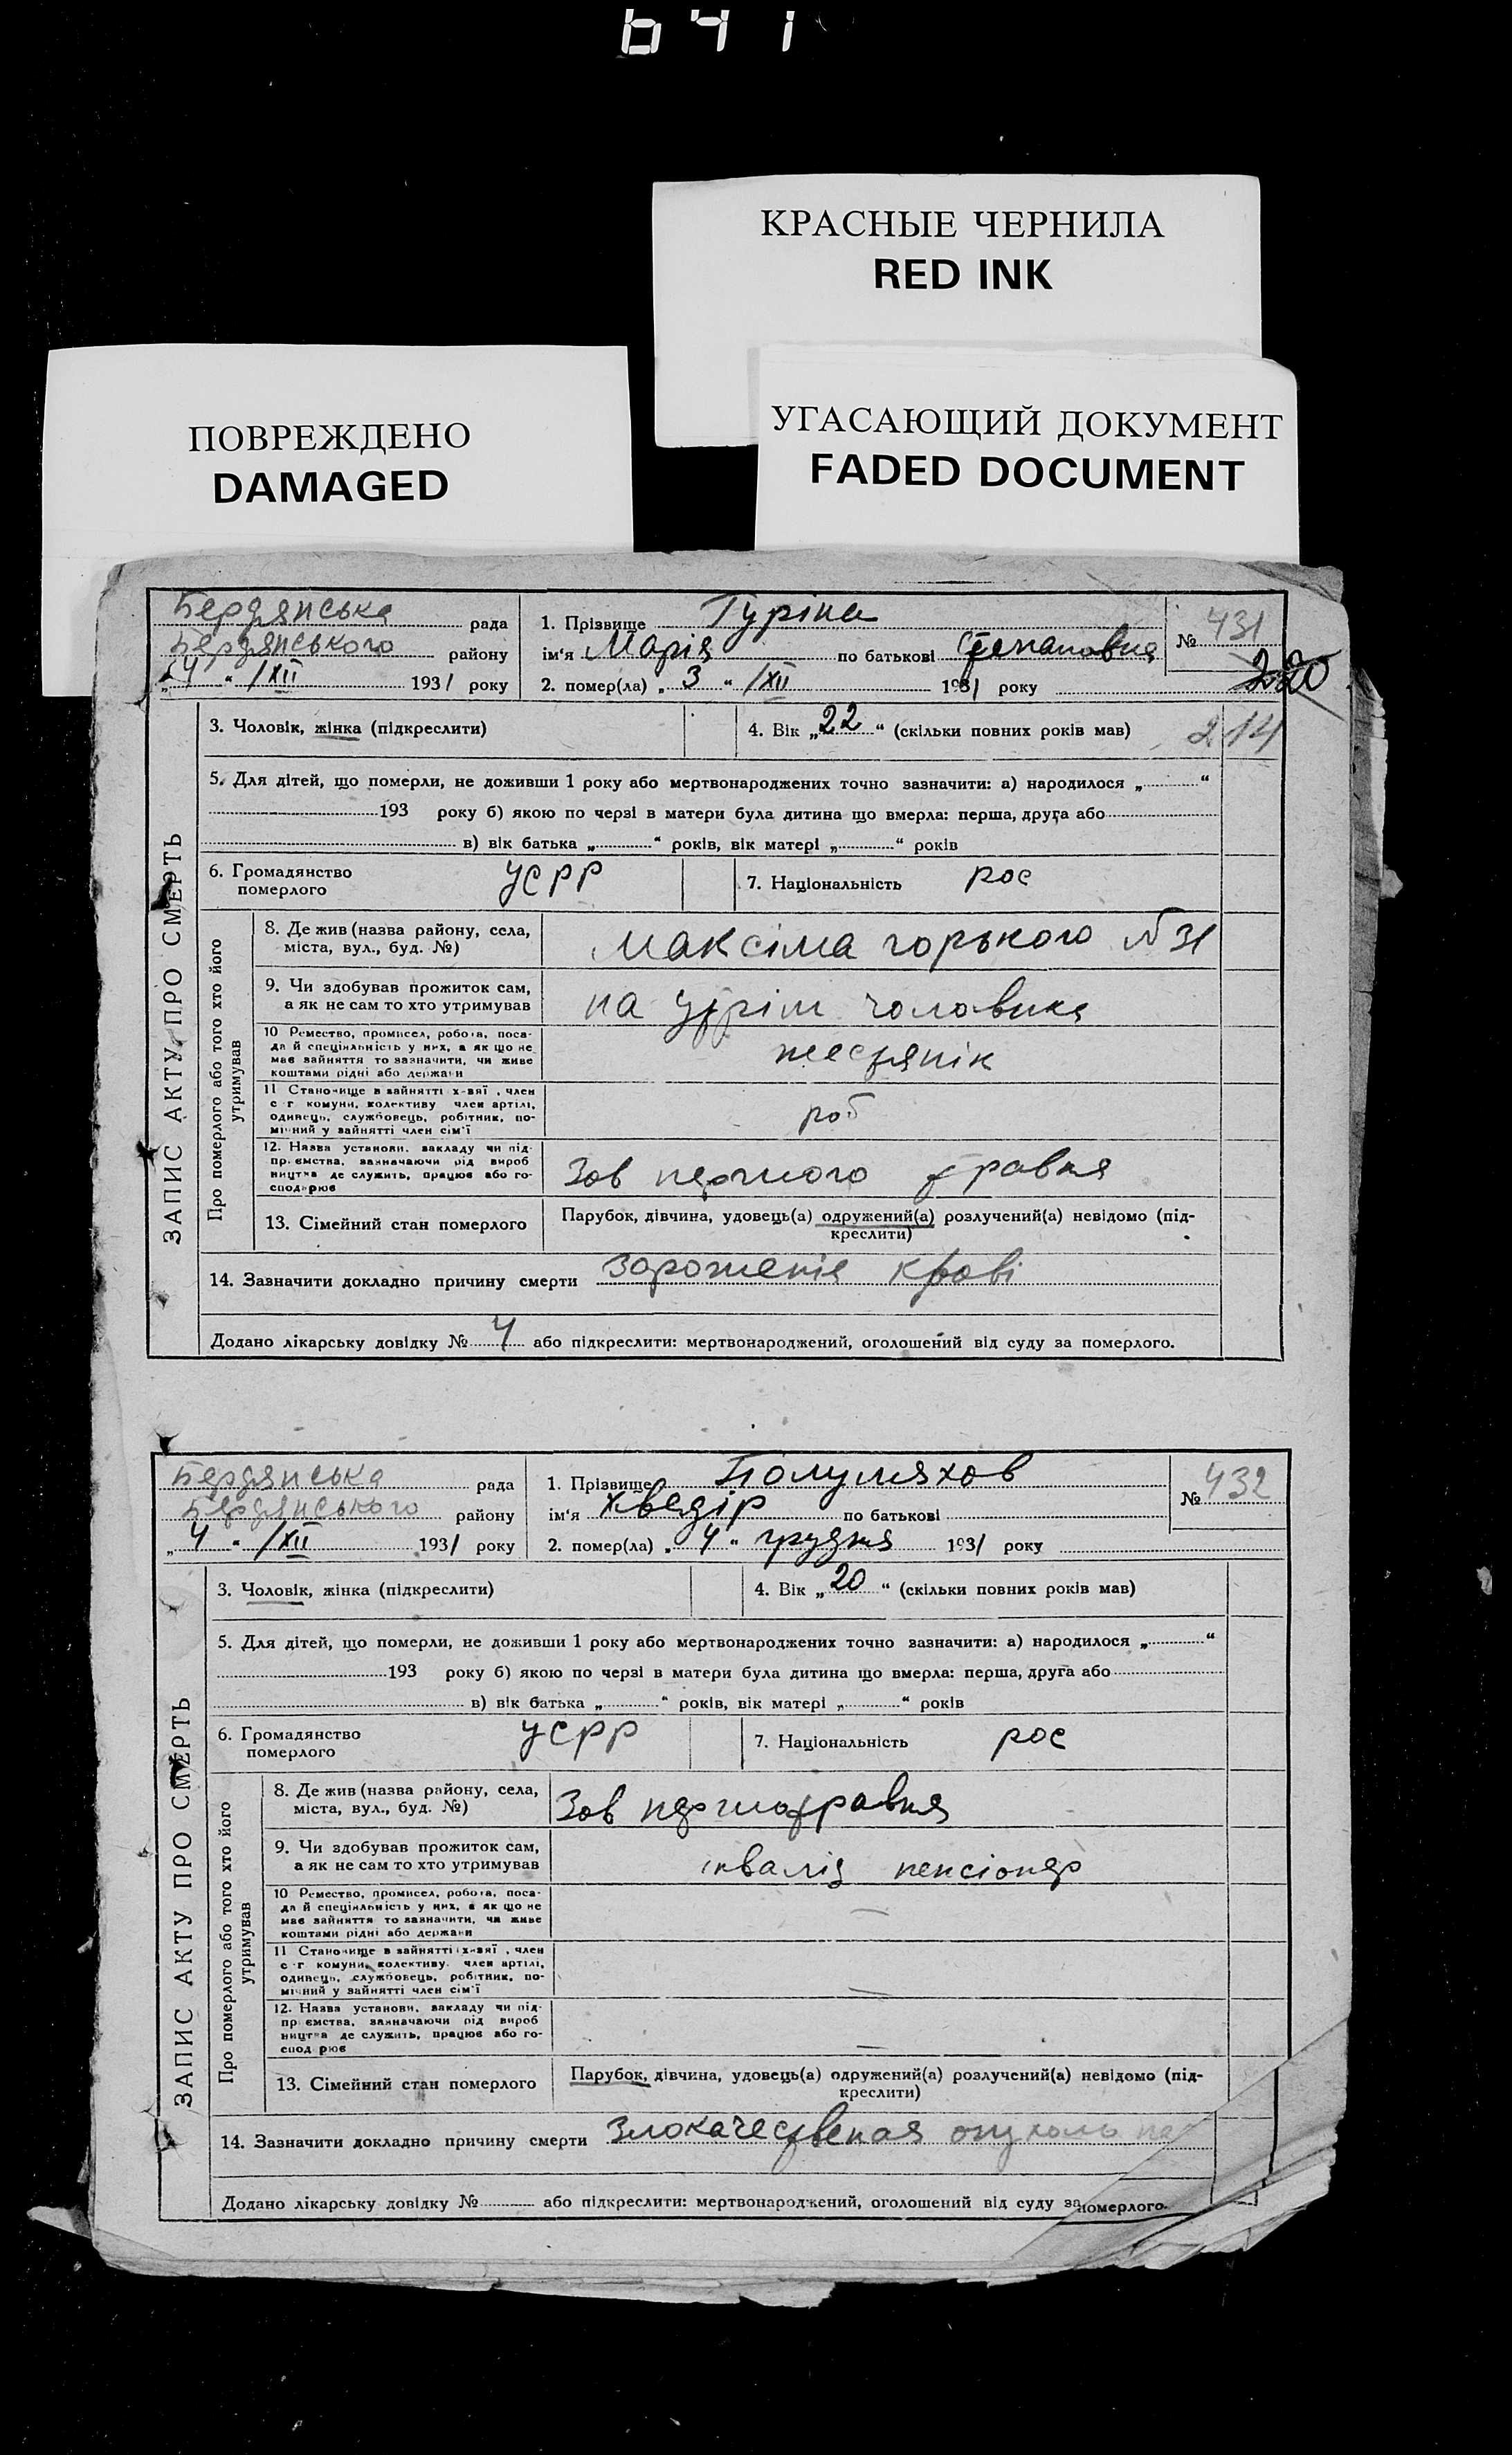 641
КРАСНЫЕ ЧЕРНИЛА
RED INK
ПОВРЕЖДЕНО
DAMAGED
УГАСАЮЩИЙ ДОКУМЕНТ
FADED DOCUMENT
Бердянська рада
Бердянського району
„4“ /XII 1931 року
1. Прізвище Туріна
ім'я Марія по батькові Степановна
2. помер(ла) „3“ /XII 1931 року
№ 431
220
214
ЗАПИС АКТУ ПРО СМЕРТЬ
3. Чоловік, жінка (підкреслити)
4. Вік „22“ (скільки повних років мав)
5. Для дітей, що померли, не доживши 1 року або мертвонароджених точно зазначити: а) народилося „ “
193 року б) якою по черзі в матери була дитина що вмерла: перша, друга або
в) вік батька „ “ років, вік матері „ “ років
6. Громадянство
померлого
УСРР
7. Національність рос
Про померлого або того хто його
утримував
8. Де жив (назва району, села,
міста, вул., буд. №)
Максіма горького №31
9. Чи здобував прожиток сам,
а як не сам то хто утримував
на утрім. чоловика
10 Ремество, промисел, робота, поса-
да й спеціяльність у них, а як що не
має зайняття то зазначити, чи живе
коштами рідні або держави
жестянік
11 Становище в зайнятті х-вяї, член
с-г комуни, колективу член артілі,
одинець, службовець, робітник, по-
мічний у зайнятті член сім'ї
роб
12. Назва установи, закладу чи під-
приємства, зазначаючи рід вироб
ництва де служить, працює або го-
сподарює
Зов першого травня
13. Сімейний стан померлого
Парубок, дівчина, удовець(а) одружений(а) розлучений(а) невідомо (під-
креслити)
14. Зазначити докладно причину смерти зароженія крові
Додано лікарську довідку № 4 або підкреслити: мертвонароджений, оголошений від суду за померлого.
Бердянська рада
Бердянського району
„4“ /XII 1931 року
1. Прізвище Полумяхов
ім'я Хведір по батькові
2. помер(ла) „4“ грудня 1931 року
№ 432
ЗАПИС АКТУ ПРО СМЕРТЬ
3. Чоловік, жінка (підкреслити)
4. Вік „20“ (скільки повних років мав)
5. Для дітей, що померли, не доживши 1 року або мертвонароджених точно зазначити: а) народилося „ “
193 року б) якою по черзі в матери була дитина що вмерла: перша, друга або
в) вік батька „ “ років, вік матері „ “ років
6. Громадянство
померлого
УСРР
7. Національність рос
Про померлого або того хто його
утримував
8. Де жив (назва району, села,
міста, вул., буд. №)
Зов першотравня
9. Чи здобував прожиток сам,
а як не сам то хто утримував
інвалід пенсіонер
10 Ремество, промисел, робота, поса-
да й спеціяльність у них, а як що не
має зайняття то зазначити, чи живе
коштами рідні або держави
—
11 Становище в зайнятті х-вяї, член
с-г комуни, колективу член артілі,
одинець, службовець, робітник, по-
мічний у зайнятті член сім'ї
—
12. Назва установи, закладу чи під-
приємства, зазначаючи рід вироб
ництва де служить, працює або го-
сподарює
—
13. Сімейний стан померлого
Парубок, дівчина, удовець(а) одружений(а) розлучений(а) невідомо (під-
креслити)
14. Зазначити докладно причину смерти Злокачествения опухоль
Додано лікарську довідку № або підкреслити: мертвонароджений, оголошений від суду за померлого.